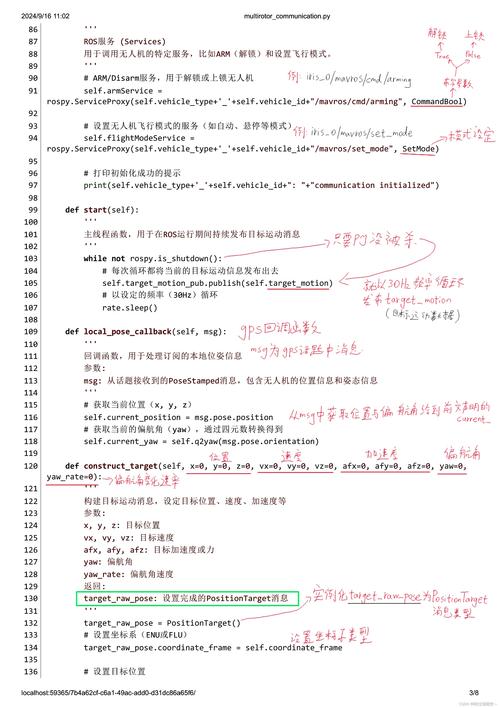 2024/9/16 11:02 multirotor_communication.py
86 '''
87 ROS服务 (Services)
88 用于调用无人机的特定服务，比如ARM（解锁）和设置飞行模式。
89 '''
90 # ARM/Disarm服务，用于解锁或上锁无人机
例: iris_0/mavros/cmd/arming
解锁 上锁
True False
布尔参数
91 self.armService =
rospy.ServiceProxy(self.vehicle_type+'_'+self.vehicle_id+"/mavros/cmd/arming", CommandBool)
92
93 # 设置无人机飞行模式的服务（如自动、悬停等模式）
例: iris_0/mavros/set_mode
94 self.flightModeService =
rospy.ServiceProxy(self.vehicle_type+'_'+self.vehicle_id+"/mavros/set_mode", SetMode)
模式设定
95
96 # 打印初始化成功的提示
97 print(self.vehicle_type+'_'+self.vehicle_id+": "+"communication initialized")
98
99 def start(self):
100 '''
101 主线程函数，用于在ROS运行期间持续发布目标运动消息
102 '''
只要PJ没被杀
103 while not rospy.is_shutdown():
104 # 每次循环都将当前的目标运动信息发布出去
105 self.target_motion_pub.publish(self.target_motion)
就以30Hz频率循环
发布target_motion
106 # 以设定的频率（30Hz）循环
(目标运动数据)
107 rate.sleep()
108
109 def local_pose_callback(self, msg):
gps回调函数
110 '''
msg为gps话题中消息
111 回调函数，用于处理订阅的本地位姿信息
112 参数:
113 msg: 从话题接收到的PoseStamped消息，包含无人机的位置信息和姿态信息
114 '''
115 # 获取当前位置（x, y, z）
116 self.current_position = msg.pose.position
从msg中获取位置与偏航角给到前文声明的
current_
117 # 获取当前的偏航角（yaw），通过四元数转换得到
118 self.current_yaw = self.q2yaw(msg.pose.orientation)
119
位置 速度 加速度 偏航角
120 def construct_target(self, x=0, y=0, z=0, vx=0, vy=0, vz=0, afx=0, afy=0, afz=0, yaw=0,
yaw_rate=0):
偏航角变化速率
121 '''
122 构建目标运动消息，设定目标位置、速度、加速度等
123 参数:
124 x, y, z: 目标位置
125 vx, vy, vz: 目标速度
126 afx, afy, afz: 目标加速度或力
127 yaw: 偏航角
128 yaw_rate: 偏航角速度
129 返回:
130 target_raw_pose: 设置完成的PositionTarget消息
实例化target_raw_pose为PositionTarget
消息类型
131 '''
132 target_raw_pose = PositionTarget()
133 # 设置坐标系（ENU或FLU）
设置坐标系类型
134 target_raw_pose.coordinate_frame = self.coordinate_frame
135
136 # 设置目标位置
localhost:59365/7b4a62cf-c6a1-49ac-add0-d31dc86a65f6/ 3/8